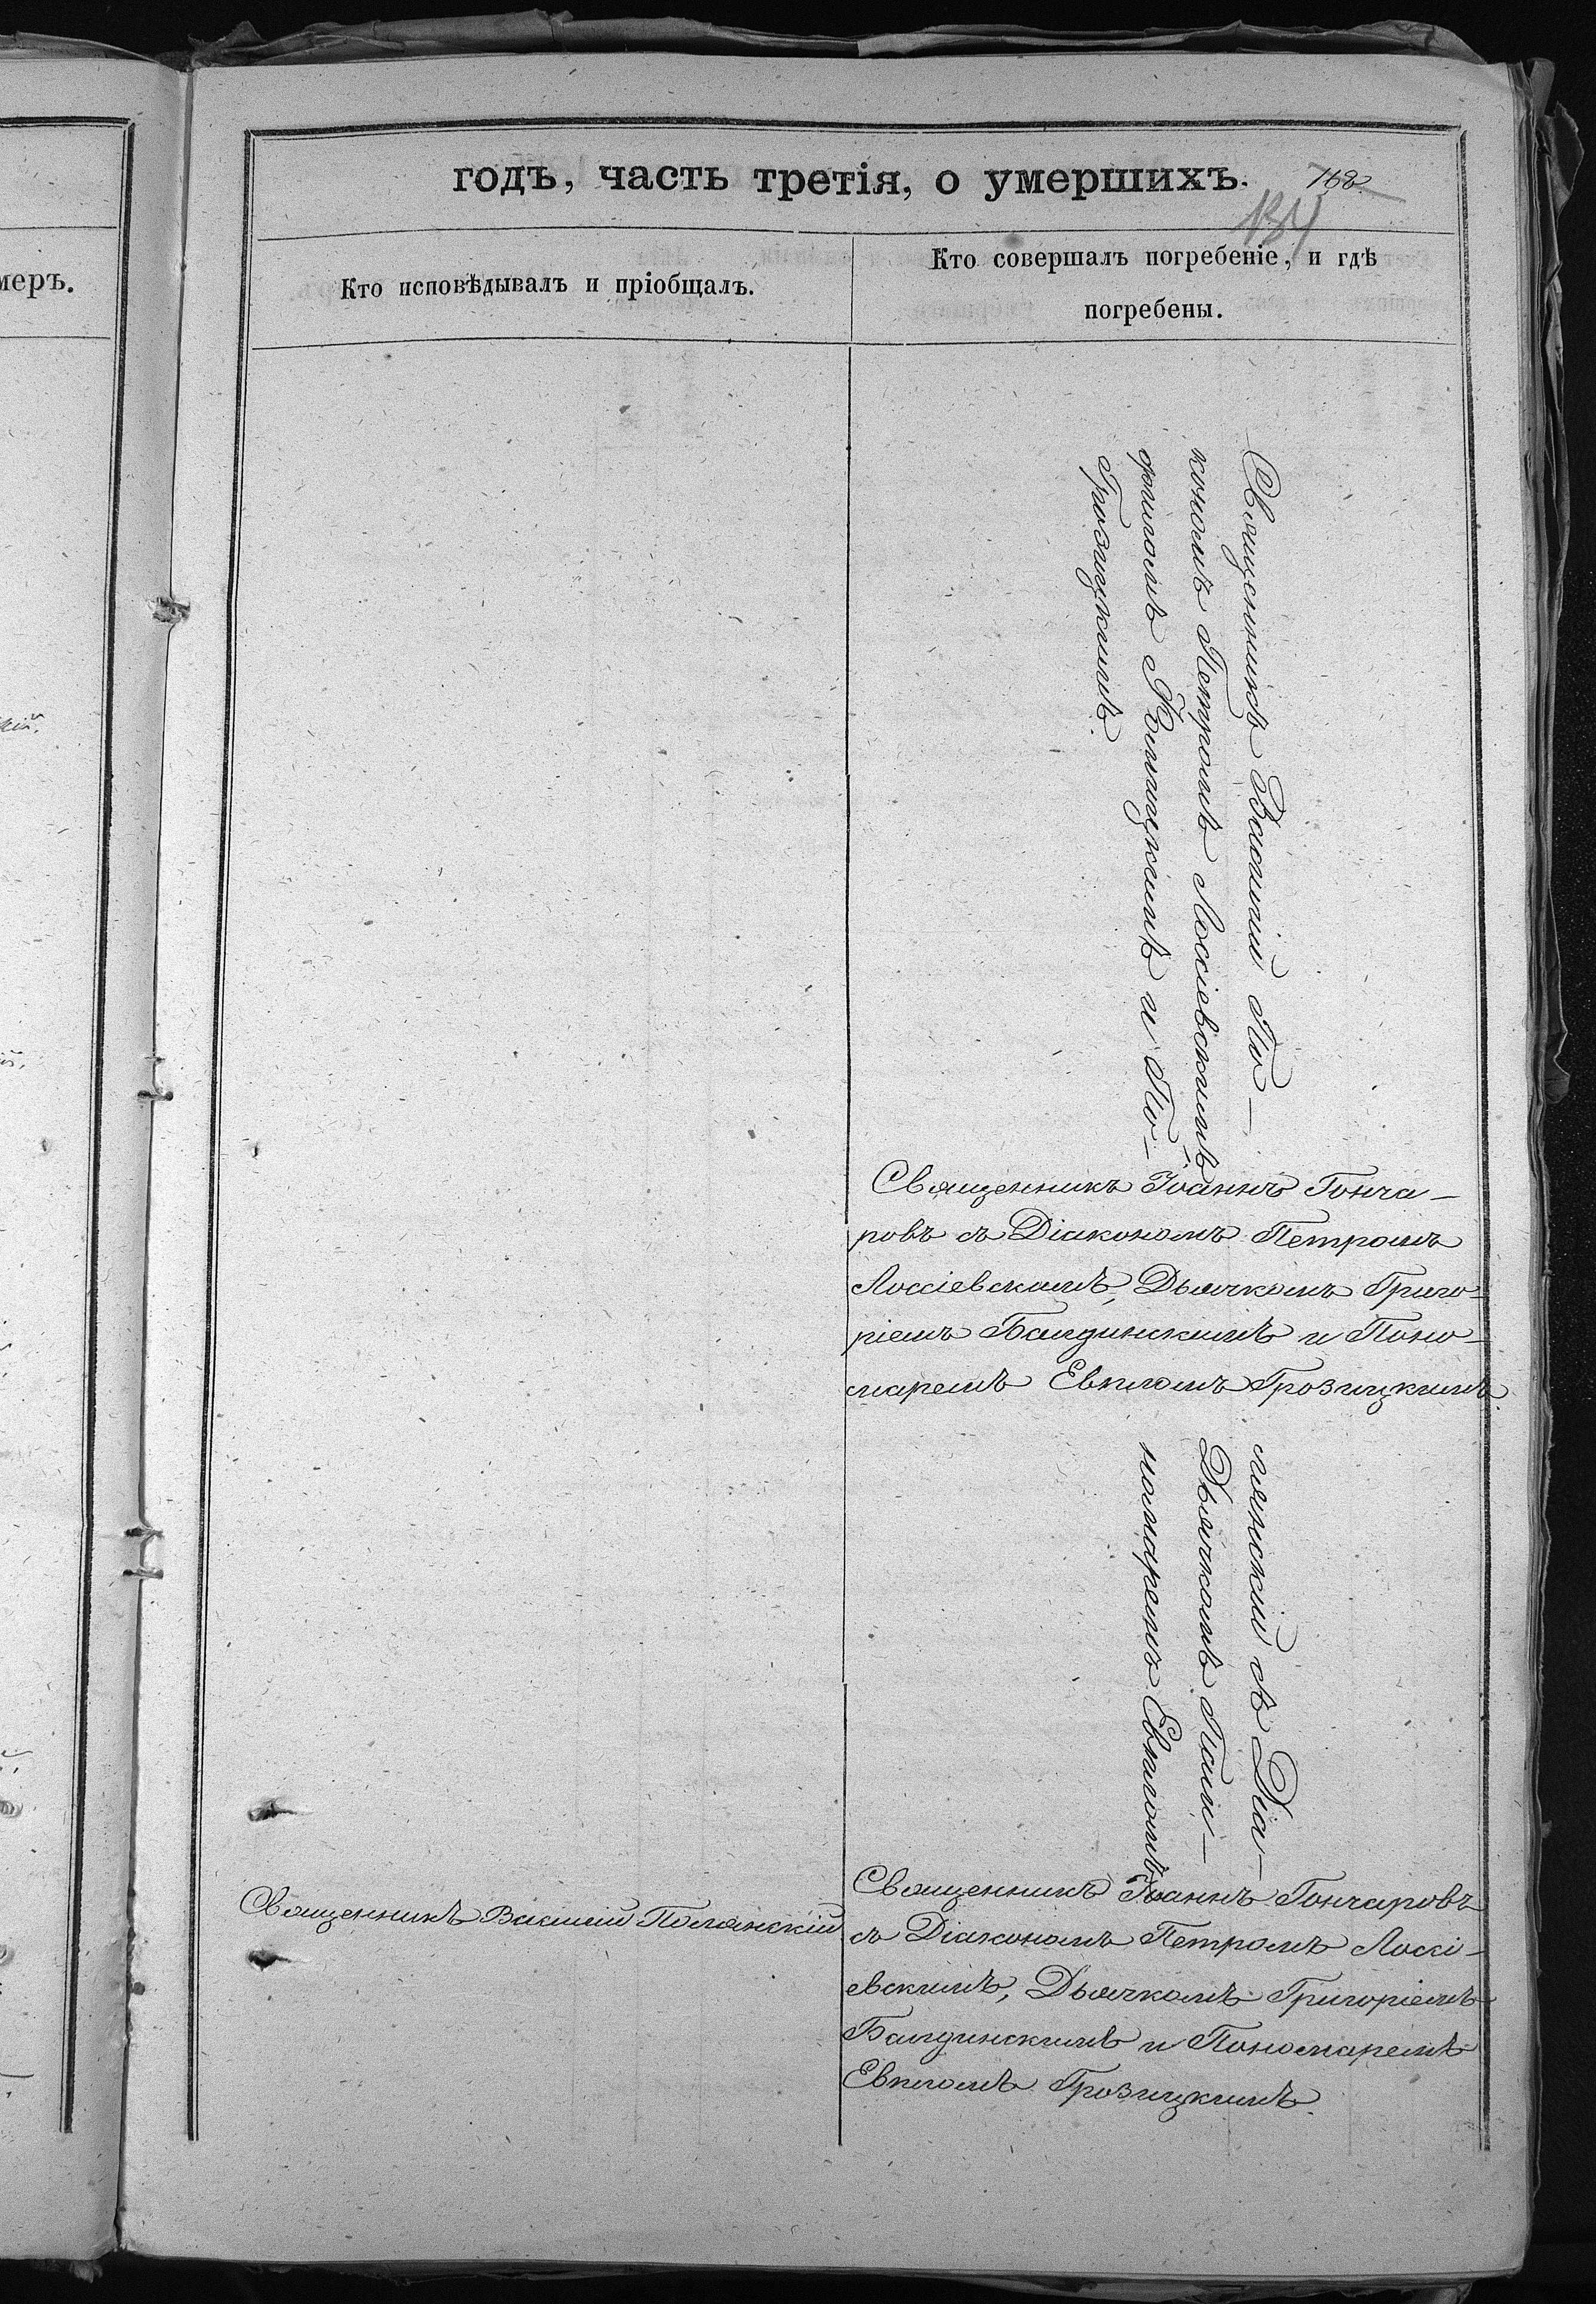 меръ.
годъ, часть третія, о умершихъ.
168.
134
Кто исповѣдывалъ и пріобщалъ.
Кто совершалъ погребеніе, и гдѣ
погребены.
Священникъ Василій По-
кономъ Петромъ Лоссіевскимъ
филомъ Жимецкимъ и По-
Грозицкимъ.
Священникъ Іоаннъ Гонча-
ровъ съ Діакономъ Петромъ
Лоссіевскимъ, Дьячкомъ Григо-
ріемъ Балдинскимъ и Поно-
маремъ Евпломъ Грозицкимъ.
лянскій съ Діа-
Дьячкомъ
номаремъ Евпломъ
Священникъ Василій Полянскій
Священникъ Іоаннъ Гончаровъ
съ Діакономъ Петромъ Лоссі-
евскимъ, Дьячкомъ Григоріемъ
Балдинскимъ и Пономаремъ
Евпломъ Грозицкимъ.